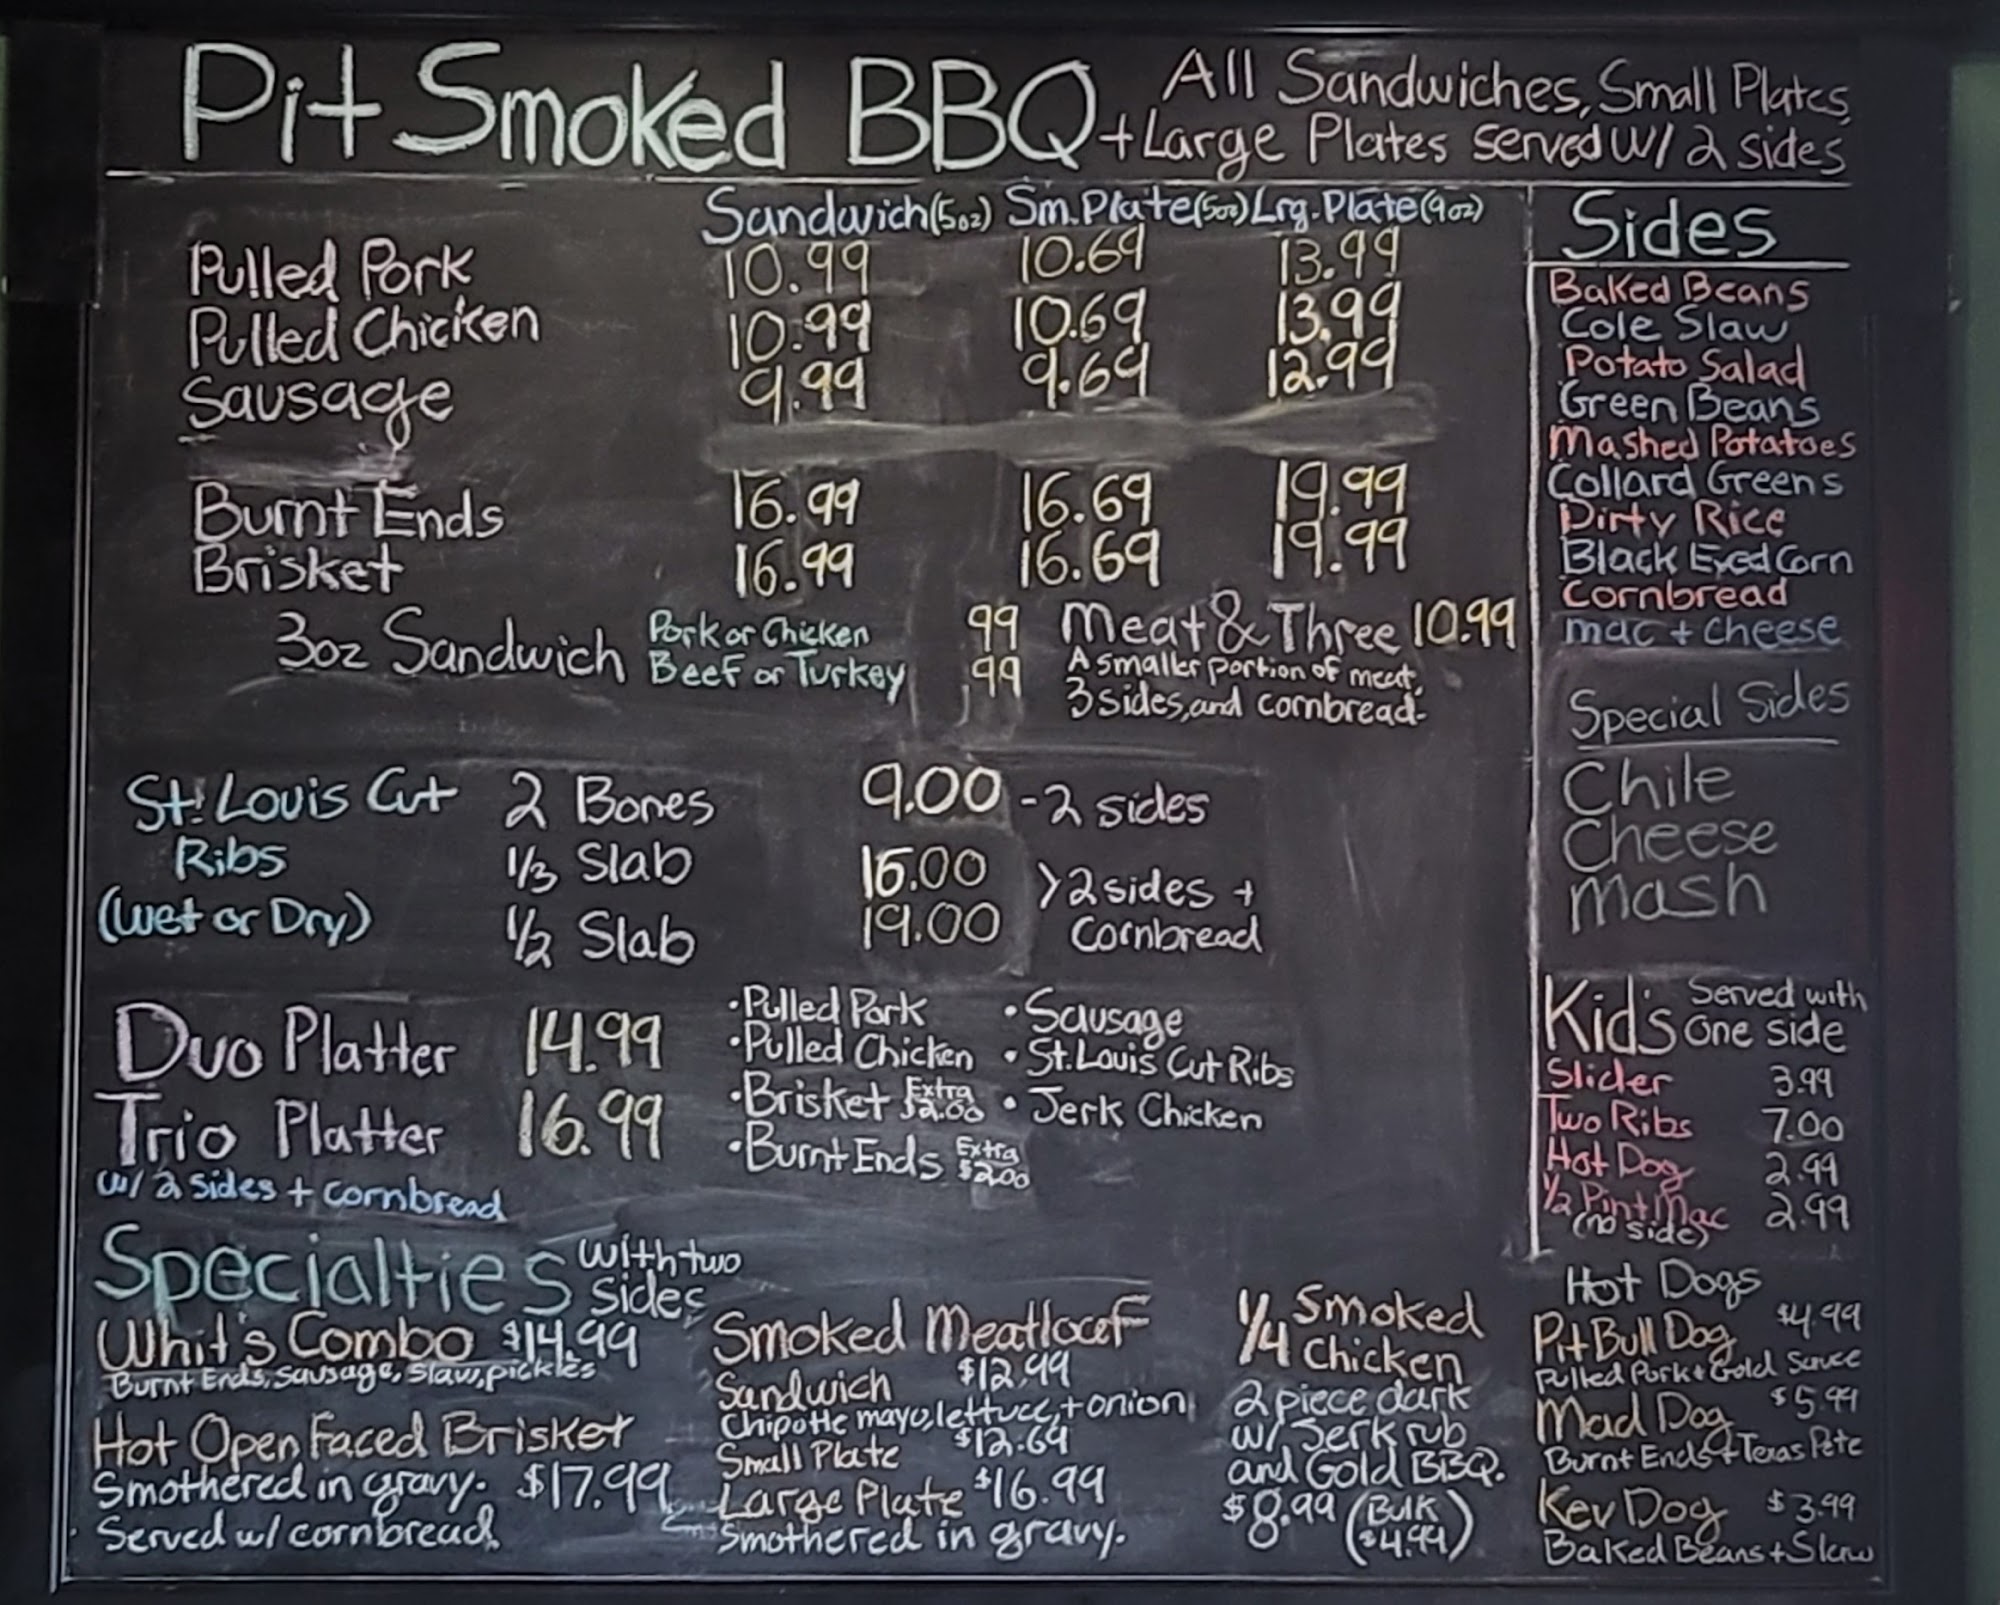 Pit Smoked BBQ
All Sandwiches, Small Plates,
+ Large Plates served w/ 2 sides
Sandwich (5oz) Sm. Plate (5oz) Lrg. Plate (9oz)
Pulled Pork 10.99 10.69 13.99
Pulled Chicken 10.99 10.69 13.99
Sausage 9.99 9.69 12.99
Burnt Ends 16.99 16.69 19.99
Brisket 16.99 16.69 19.99
3oz Sandwich
Pork or Chicken 99
Beef or Turkey 99
Meat & Three 10.99
A smaller portion of meat,
3 sides, and cornbread.
St. Louis Cut
Ribs
(Wet or Dry)
2 Bones 9.00 - 2 sides
1/3 Slab 16.00
1/2 Slab 19.00
> 2 sides +
Cornbread
Duo Platter 14.99
Trio Platter 16.99
w/ 2 sides + cornbread
• Pulled Pork
• Pulled Chicken
• Brisket Extra $2.00
• Burnt Ends Extra $2.00
• Sausage
• St. Louis Cut Ribs
• Jerk Chicken
Specialties with two
sides
Whit's Combo $14.99
Burnt Ends, sausage, slaw, pickles
Hot Open Faced Brisket
Smothered in gravy. $17.99
Served w/ cornbread.
Smoked Meatloaf
Sandwich $12.99
Chipotle mayo, lettuce, + onion
Small Plate $12.69
Large Plate $16.99
Smothered in gravy.
1/4 Smoked
Chicken
2 piece dark
w/ Jerk rub
and Gold BBQ.
$8.99 (Bulk
$4.99)
Sides
Baked Beans
Cole Slaw
Potato Salad
Green Beans
Mashed Potatoes
Collard Greens
Dirty Rice
Black Eyed Corn
Cornbread
mac + cheese
Special Sides
Chile
Cheese
Mash
Kid's Served with
one side
Slider 3.99
Two Ribs 7.00
Hot Dog 2.99
1/2 Pint Mac 2.99
(no side)
Hot Dogs
Pit Bull Dog $4.99
Pulled Pork + Gold Sauce
Mad Dog $5.99
Burnt Ends + Texas Pete
Kev Dog $3.99
Baked Beans + Slaw